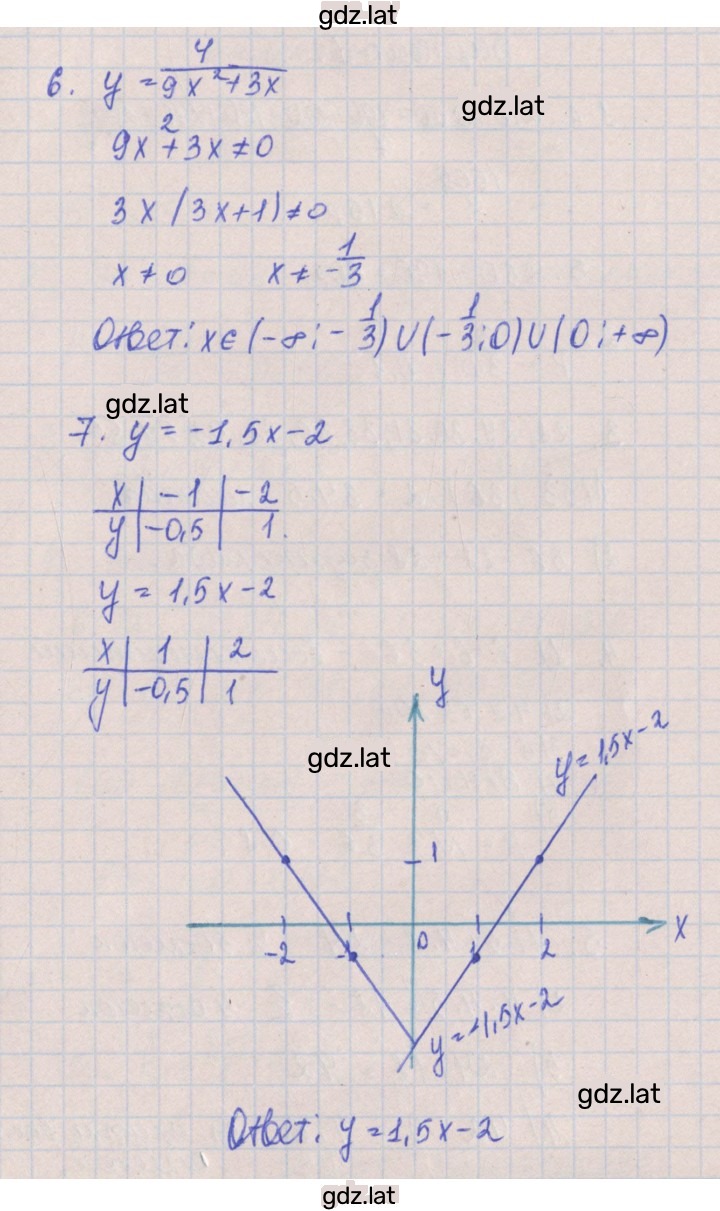 gdz.lat
6. y = 4/(9x² + 3x)
gdz.lat
9x² + 3x ≠ 0
3x(3x+1) ≠ 0
x ≠ 0    x ≠ -1/3
Ответ: x ∈ (-∞; -1/3) ∪ (-1/3; 0) ∪ (0; +∞)
gdz.lat
7. y = -1,5x - 2
x | -1 | -2
y | -0,5 | 1
y = 1,5x - 2
x | 1 | 2
y | -0,5 | 1
y
y = 1,5x - 2
gdz.lat
1
x
-2 -1 0 1 2
y = -1,5x - 2
gdz.lat
Ответ: y = 1,5x - 2
gdz.lat